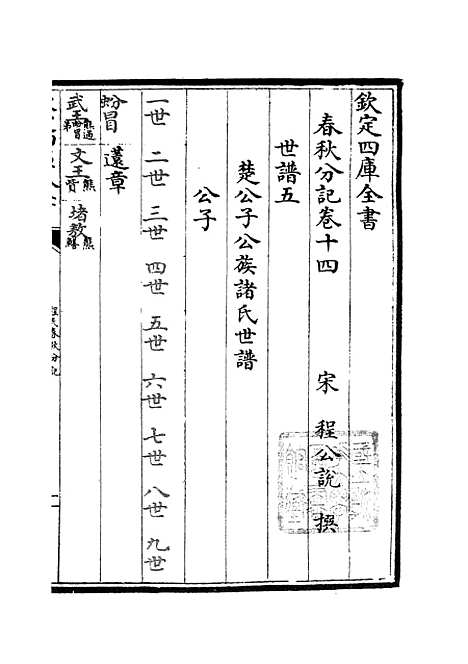 欽定四庫全書
春秋分記卷十四
宋 程公說 撰
世譜五
楚公子公族諸氏世譜
公子
一世 二世 三世 四世 五世 六世 七世 八世 九世
蚡冒 薳章
武王熊通蚡冒弟 文王熊貲 堵敖熊囏
程氏春秋分記